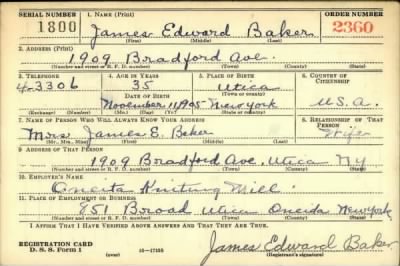 SERIAL NUMBER 1. NAME (Print) ORDER NUMBER
1800 James Edward Baker 2360
(First) (Middle) (Last)
2. ADDRESS (Print)
1909 Bradford Ave.
(Number and street or R. F. D. number) (Town) (County) (State)
3. TELEPHONE 4. AGE IN YEARS 5. PLACE OF BIRTH 6. COUNTRY OF CITIZENSHIP
4-3306 35 Utica
DATE OF BIRTH (Town or county)
November 11 1905 New York U.S.A.
(Exchange) (Number) (Mo.) (Day) (Yr.) (State or country)
7. NAME OF PERSON WHO WILL ALWAYS KNOW YOUR ADDRESS 8. RELATIONSHIP OF THAT PERSON
Mrs. James E. Baker Wife
(Mr., Mrs., Miss) (First) (Middle) (Last)
9. ADDRESS OF THAT PERSON
1909 Bradford Ave, Utica NY
(Number and street or R. F. D. number) (Town) (County) (State)
10. EMPLOYER'S NAME
Oneita Knitting Mill.
11. PLACE OF EMPLOYMENT OR BUSINESS
851 Broad Utica Oneida New York
(Number and street or R. F. D. number) (Town) (County) (State)
I AFFIRM THAT I HAVE VERIFIED ABOVE ANSWERS AND THAT THEY ARE TRUE.
REGISTRATION CARD
D. S. S. Form 1 (over) James Edward Baker
(Registrant's signature)